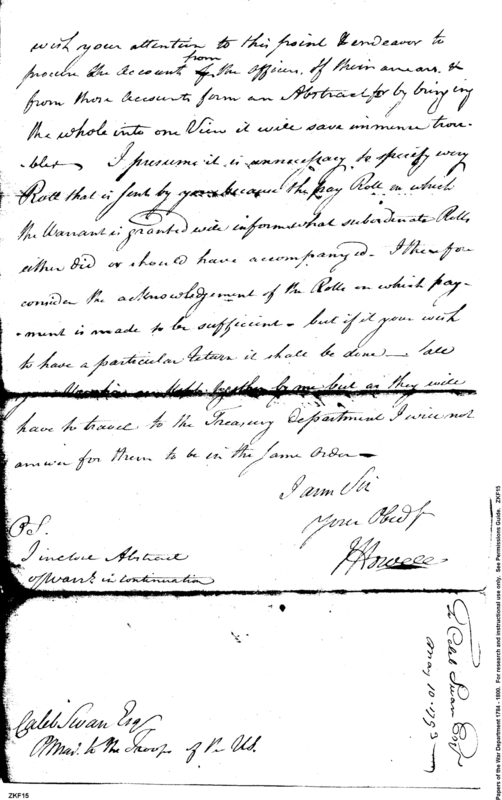 wish your attention to this point & endeavor to
procure the accounts from the officers of their arrears &
from those accounts form an Abstract for by bringing
the whole into one View it will save immence trou-
bles I presume it is unnecessary to specify every
Roll that is sent by you because the pay Roll on which
the Warrant is granted will inform what subordinate Rolls
either did or should have accompanyed. I therefore
consider the acknowledgement of the Rolls on which pay-
-ment is made to be sufficient - but if it your wish
to have a particular return it shall be done -
together by me but as they will
have to travel to the Treasury Department I will not
answer for them to be in the same order -
I am Sir
Your Obedt
J Howell
P.S.
I inclose Abstract
of Warrts in continuation
Caleb Swan Esqr
PMas. to the Troops of the U.S.
To Caleb Swan Esqr
May 10. 1793
Papers of the War Department 1784 - 1800. For research and instructional use only. See Permissions Guide. ZKF15
ZKF15